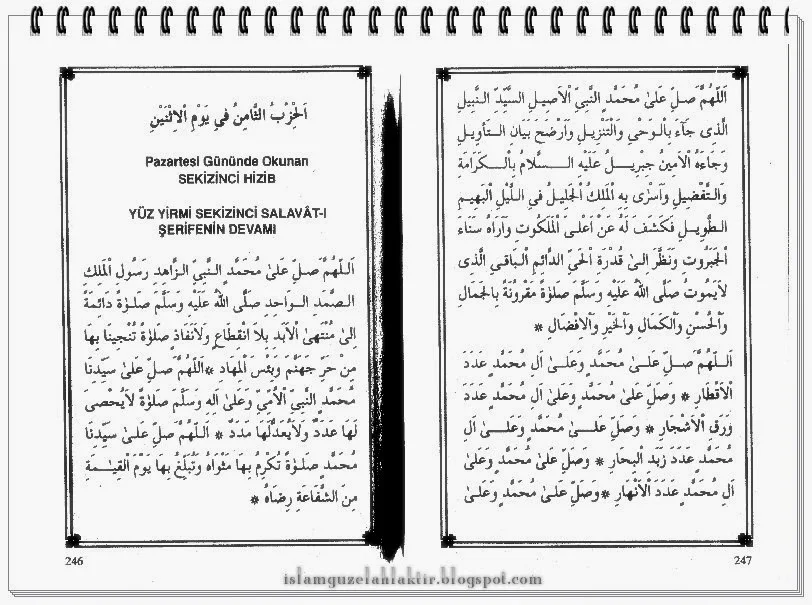 اَلْحِزْبُ الثَّامِنُ فِي يَوْمِ الْاِثْنَيْنِ
Pazartesi Gününde Okunan
SEKİZİNCİ HİZİB
YÜZ YİRMİ SEKİZİNCİ SALAVÂT-I
ŞERİFENİN DEVAMI
اَللّٰهُمَّ صَلِّ عَلٰى مُحَمَّدٍ النَّبِيِّ الزَّاهِدِ رَسُولِ الْمَلِكِ
الصَّمَدِ الْوَاحِدِ صَلَّى اللّٰهُ عَلَيْهِ وَسَلَّمَ صَلٰوةً دَائِمَةً
اِلٰى مُنْتَهَى الْاَبَدِ بِلَا انْقِطَاعٍ وَلَانَفَادٍ صَلٰوةً تُنْجِينَا بِهَا
مِنْ حَرِّ جَهَنَّمَ وَبِئْسَ الْمِهَادِ * اَللّٰهُمَّ صَلِّ عَلٰى سَيِّدِنَا
مُحَمَّدٍ النَّبِيِّ الْاُمِّيِّ وَعَلٰى اٰلِهِ وَسَلَّمَ صَلٰوةً لَايُحْصٰى
لَهَا عَدَدٌ وَلَايُعَدُّلَهَا مَدَدٌ * اَللّٰهُمَّ صَلِّ عَلٰى سَيِّدِنَا
مُحَمَّدٍ صَلٰوةً تُكْرِمُ بِهَا مَثْوَاهُ وَتُبَلِّغُ بِهَا يَوْمَ الْقِيٰمَةِ
مِنَ الشَّفَاعَةِ رِضَاهُ *
246
اَللّٰهُمَّ صَلِّ عَلٰى مُحَمَّدٍ النَّبِيِّ الْاَصِيلِ السَّيِّدِ النَّبِيلِ
الَّذِى جَآءَ بِالْوَحْىِ وَالتَّنْزِيلِ وَاَوْضَحَ بَيَانَ التَّأْوِيلِ
وَجَاءَهُ الْاَمِينُ جِبْرِيلُ عَلَيْهِ السَّلَامُ بِالْكَرَامَةِ
وَالتَّفْضِيلِ وَاَسْرٰى بِهِ الْمَلِكُ الْجَلِيلُ فِي اللَّيْلِ الْبَهِيمِ
الطَّوِيلِ فَكَشَفَ لَهُ عَنْ اَعْلَى الْمَلَكُوتِ وَاَرَاهُ سَنَاءَ
الْجَبَرُوتِ وَنَظَرَ اِلٰى قُدْرَةِ الْحَيِّ الدَّائِمِ الْبَاقِي الَّذِى
لَايَمُوتُ صَلَّى اللّٰهُ عَلَيْهِ وَسَلَّمَ صَلٰوةً مَقْرُونَةً بِالْجَمَالِ
وَالْحُسْنِ وَالْكَمَالِ وَالْخَيْرِ وَالْاِفْضَالِ *
اَللّٰهُمَّ صَلِّ عَلٰى مُحَمَّدٍ وَعَلٰى اٰلِ مُحَمَّدٍ عَدَدَ
الْاَقْطَارِ * وَصَلِّ عَلٰى مُحَمَّدٍ وَعَلٰى اٰلِ مُحَمَّدٍ عَدَدَ
وَرَقِ الْاَشْجَارِ * وَصَلِّ عَلٰى مُحَمَّدٍ وَعَلٰى اٰلِ
مُحَمَّدٍ عَدَدَ زَبَدِ الْبِحَارِ * وَصَلِّ عَلٰى مُحَمَّدٍ وَعَلٰى
اٰلِ مُحَمَّدٍ عَدَدَ الْاَنْهَارِ * وَصَلِّ عَلٰى مُحَمَّدٍ وَعَلٰى
247
islamguzelahlaktir.blogspot.com